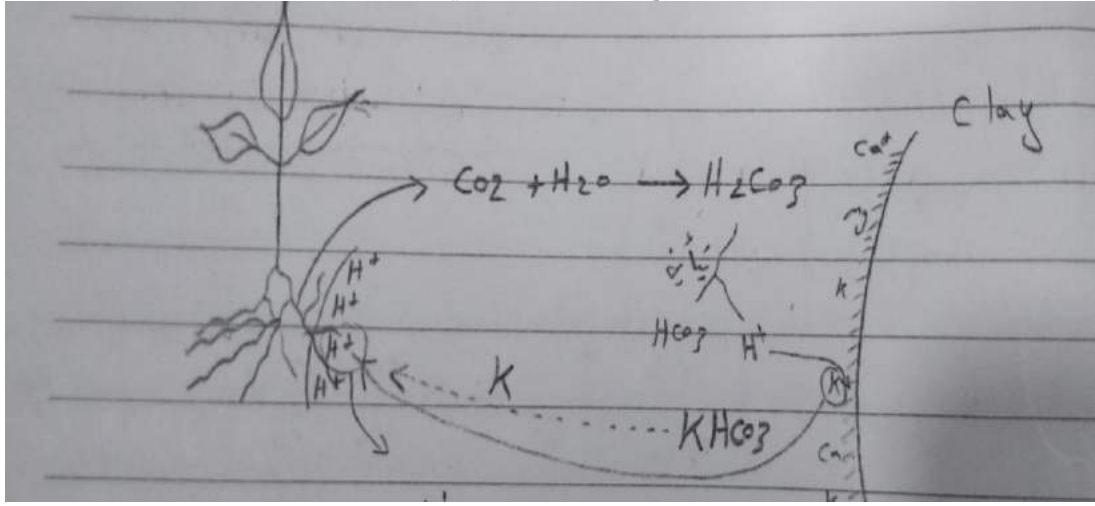 Clay
Ca+
CO2 + H2O → H2CO3
mg
H+
K
H+
HCO3 H+
H+
K
K
H+
KHCO3
Ca
K